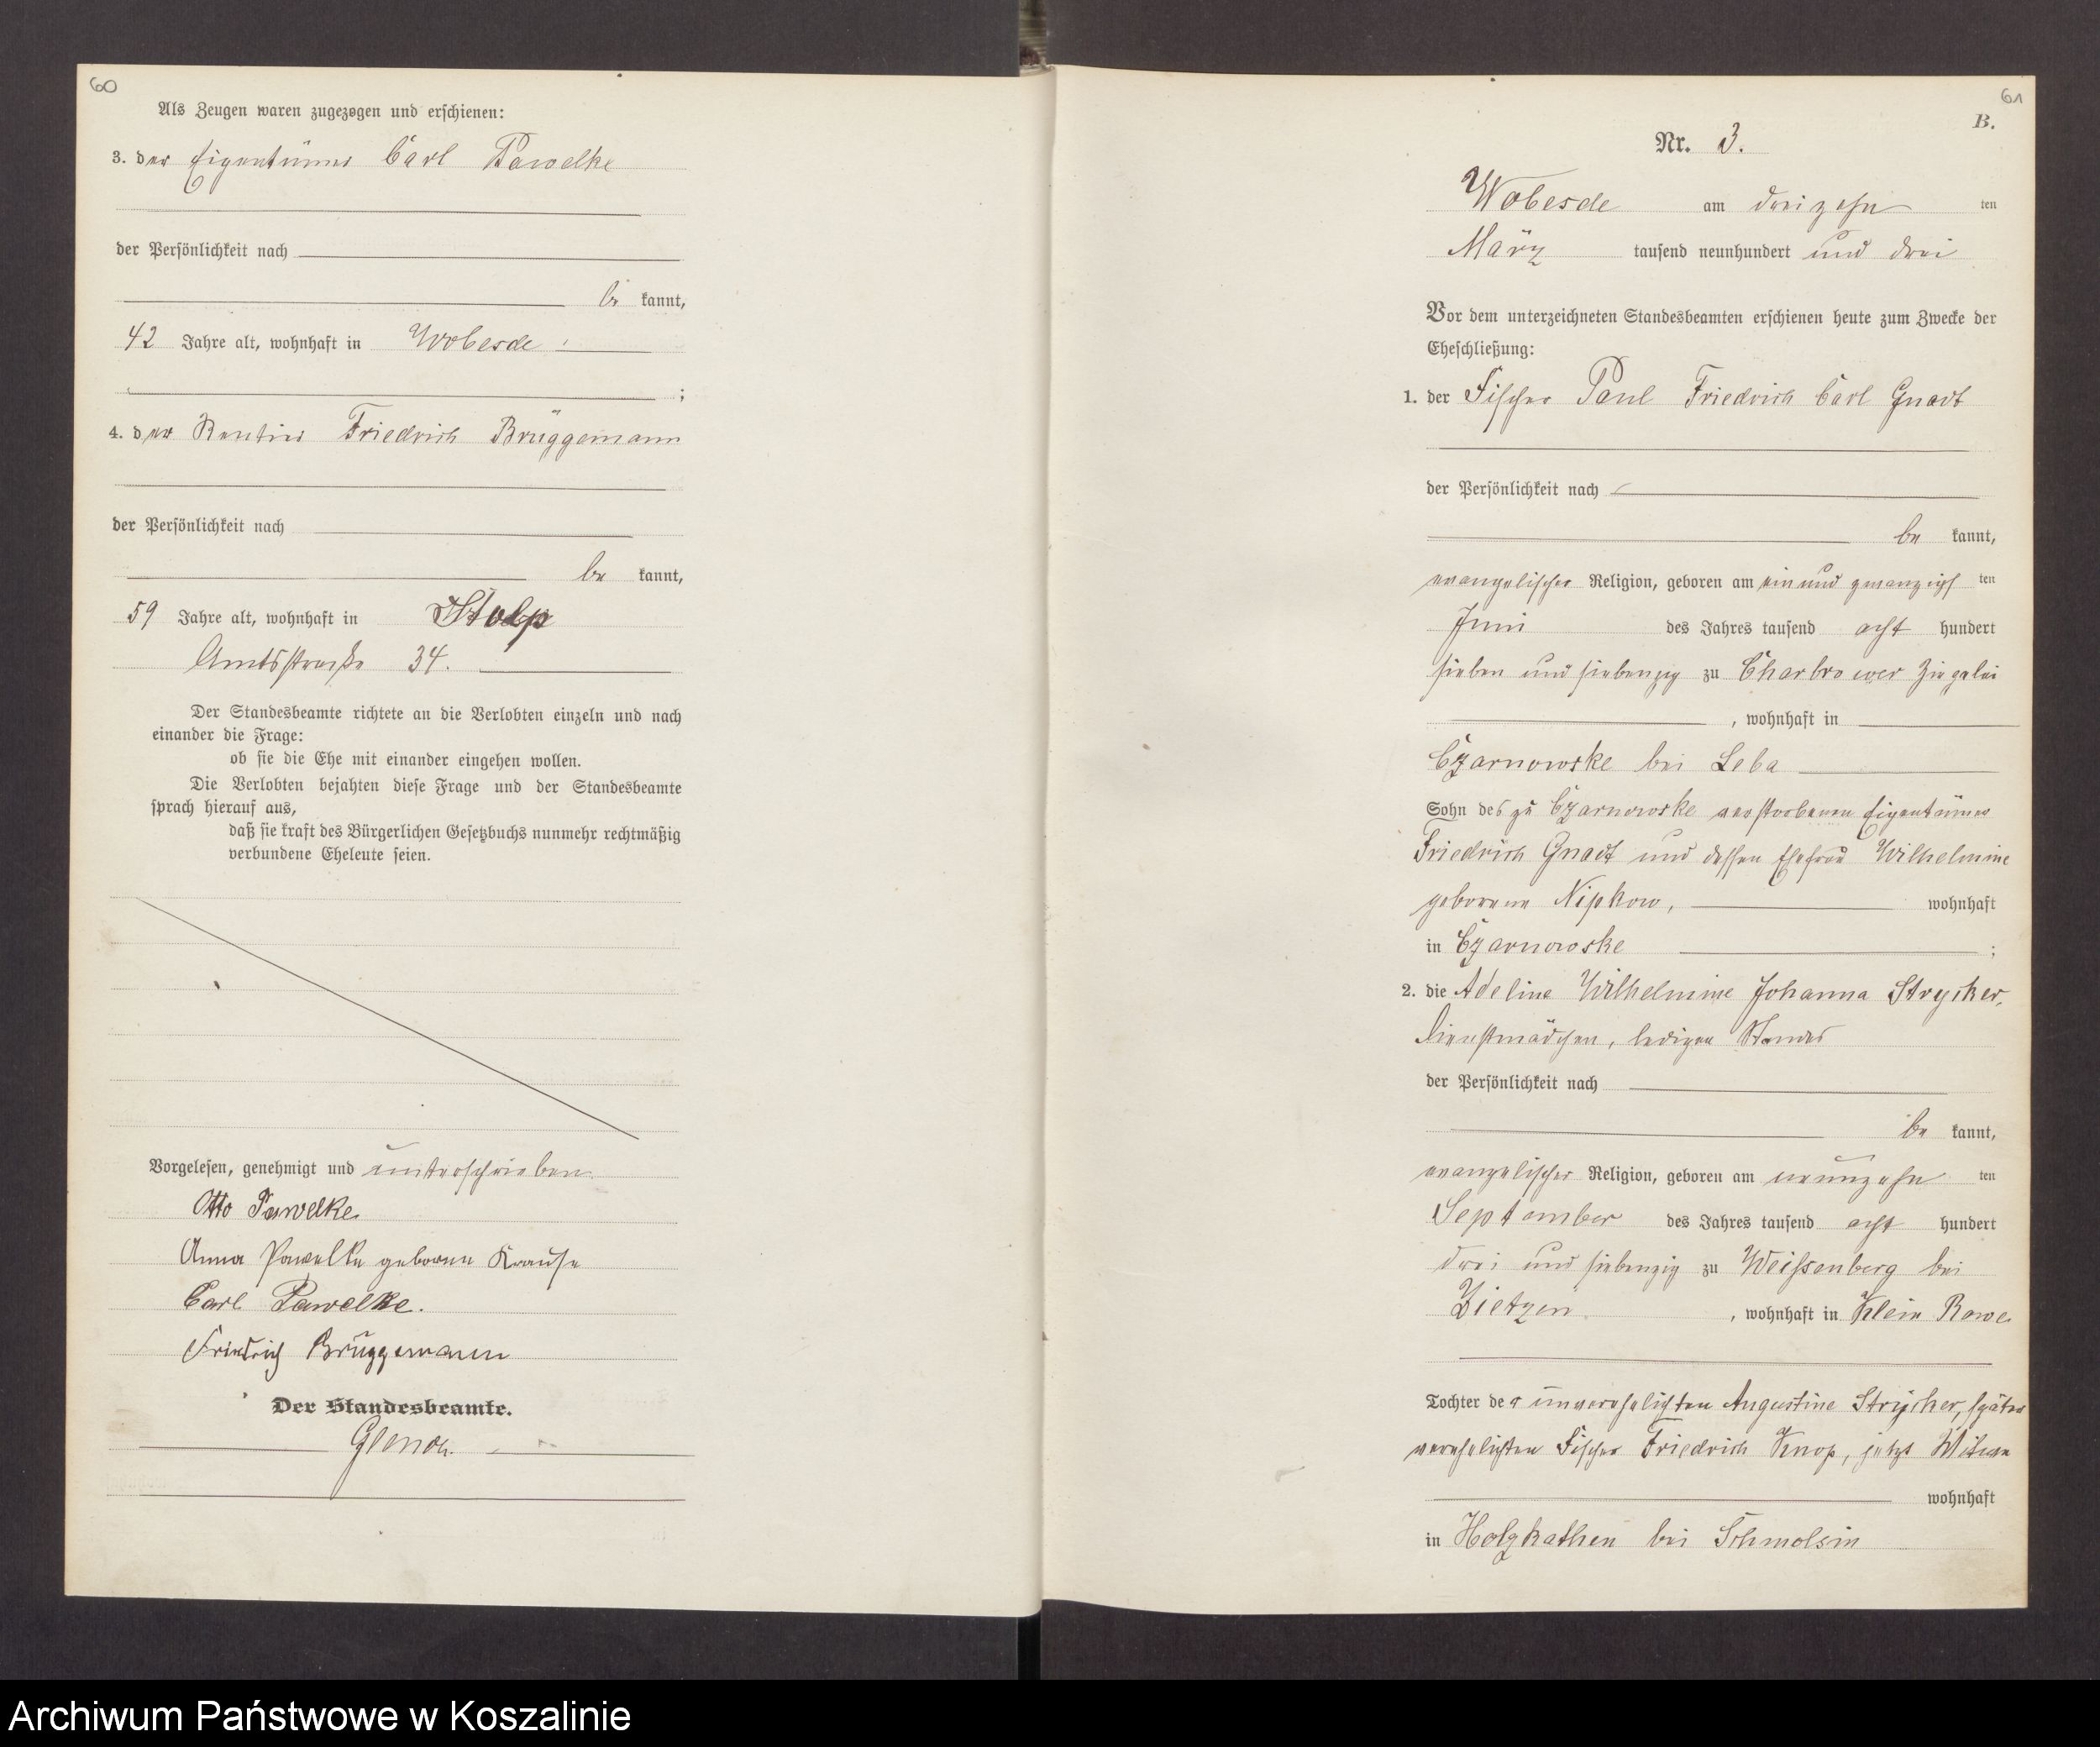 60
Als Zeugen waren zugezogen und erschienen:
3. der Eigentümer Carl Pawelke
der Persönlichkeit nach
be kannt,
42 Jahre alt, wohnhaft in Wobesde
;
4. der Rentier Friedrich Brüggemann
der Persönlichkeit nach
be kannt,
59 Jahre alt, wohnhaft in Stolp
Amtsstraße 34.
Der Standesbeamte richtete an die Verlobten einzeln und nach
einander die Frage:
ob sie die Ehe mit einander eingehen wollen.
Die Verlobten bejahten diese Frage und der Standesbeamte
sprach hierauf aus,
daß sie kraft des Bürgerlichen Gesetzbuchs nunmehr rechtmäßig
verbundene Eheleute seien.
Vorgelesen, genehmigt und unterschrieben
Otto Pawelke
Anna Pawelke geborene Krause
Carl Pawelke.
Friedrich Brüggemann
Der Standesbeamte.
61
B.
Nr. 3.
Wobesde am dreizehn ten
März tausend neunhundert und drei
Vor dem unterzeichneten Standesbeamten erschienen heute zum Zwecke der
Eheschließung:
1. der Fischer Paul Friedrich Carl Gnadt
der Persönlichkeit nach
be kannt,
evangelischer Religion, geboren am ein und zwanzigsten
Juni des Jahres tausend acht hundert
sieben und siebenzig zu Charbrower Ziegelei
, wohnhaft in
Czarnowske bei Leba
Sohn des zu Czarnowske verstorbenen Eigentümer
Friedrich Gnadt und dessen Ehefrau Wilhelmine
geborene Nipkow, wohnhaft
in Czarnowske ;
2. die Adeline Wilhelmine Johanna Stryker,
Dienstmädchen, ledigen Standes
der Persönlichkeit nach
be kannt,
evangelischer Religion, geboren am neunzehn ten
September des Jahres tausend acht hundert
drei und siebenzig zu Weissenberg bei
Zietzen, wohnhaft in Klein Rowe
Tochter der unverehelichten Augustine Stryker, später
verehelichten Fischer Friedrich Knop, jetzt Witwe
wohnhaft
in Holzkathen bei Schmolsin
Archiwum Państwowe w Koszalinie